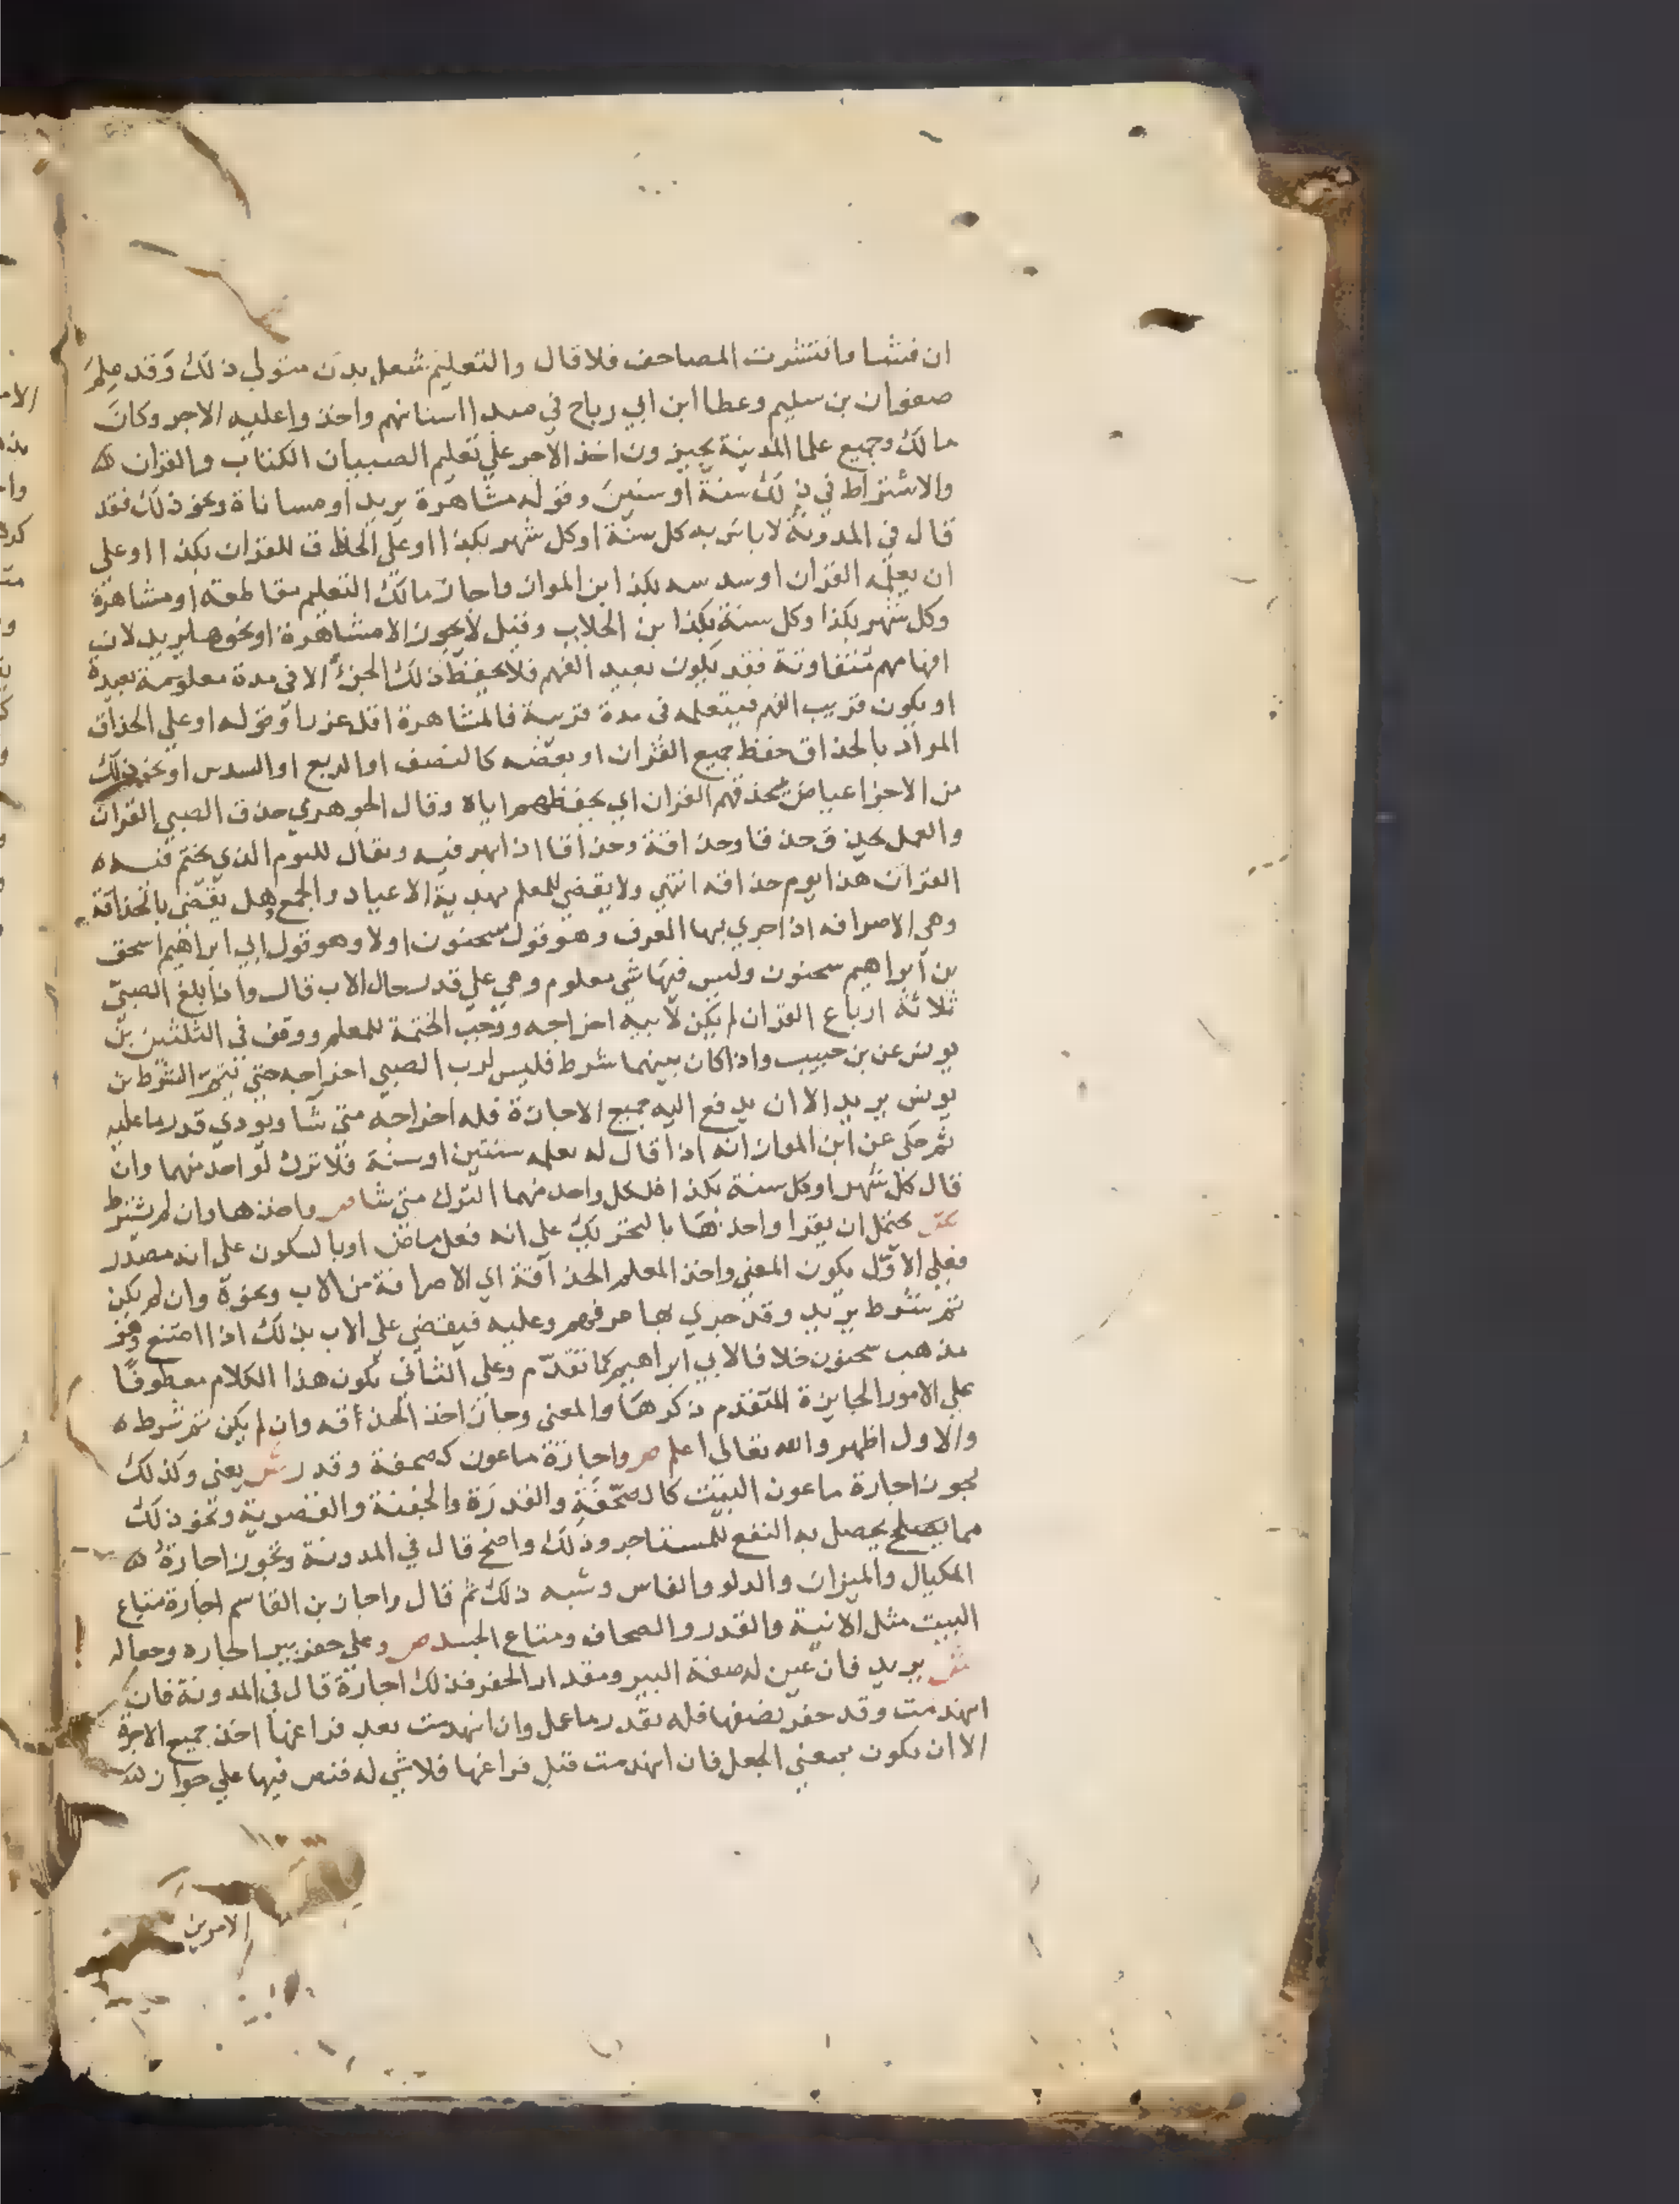 ان فشا وانتشرت المصاحف فلا قال والتعليم شغل بدن متولي ذلك وقد علم
صفوان بن سليم وعطا ابن ابي رباح في مبدا اسنانهم واخذوا عليه الاجر وكان
مالك وجميع علما المدينة يجيزون اخذ الاجر علي تعليم الصبيان الكتاب والقران
والاشتراط في ذلك سنة او سنين وقوله مشاهرة يريد او مساناة ونحو ذلك فقد
قال في المدونة لا باس به كل سنة او كل شهر بكذا او علي الحذاق للقران بكذا او علي
ان يعلمه القران او سدسه بكذا ابن المواز واجاز مالك التعليم مقاطعة او مشاهرة
وكل شهر بكذا وكل سنة بكذا بن الجلاب وقيل لا يجوز الا مشاهرة او نحوها يريد لان
افهامهم متفاوتة فقد يكون بعيد الفهم فلا يحفظ ذلك الجزء الا في مدة معلومة بعيدة
او يكون قريب الفهم فيتعلمه في مدة قريبة فالمشاهرة اقل غررا وقوله او علي الحذاق
المراد بالحذاق حفظ جميع القران او بعضه كالنصف او الربع او السدس او نحو ذلك
من الاجزا عياض يحذقهم القران اي يحفظهم اياه وقال الجوهري حذق الصبي القران
والعمل يحذق حذقا وحذاقة وحذاقا اذا مهر فيه ويقال لليوم الذي يختم فيه
القران هذا يوم حذاقه انتهي ولا يقضي للمعلم بهدية الاعياد والجمع وهل يقضي بالحذاقة
وهي الاصرافه اذا جري بها العرف وهو قول سحنون اولا وهو قول ابي ابراهيم اسحق
بن ابراهيم سحنون وليس فيها شي معلوم وهي علي قدر حال الاب قال واذا بلغ الصبي
ثلاثة ارباع القران لم يكن لابيه اخراجه ووجب الختمة للمعلم ووقف في الثلثين بن
يونس عن بن حبيب واذا كان بينهما شرط فليس لرب الصبي اخراجه حتي يتم الشرط بن
يونس يريد الا ان يدفع اليه جميع الاجارة فله اخراجه متي شا ويودي قدر ما عليه
ثم حكي عن ابن المواز انه اذا قال له يعلمه سنتين او سنة فلا ترك لواحد منهما وان
قال كل شهر او كل سنة بكذا فلكل واحد منهما الترك متي شا ص واخذها وان لم يشترط
ش يحتمل ان يقرا واخذها بالتحريك علي انه فعل ماض او بالسكون علي انه مصدر
فعلي الاول يكون المعني واخذ المعلم الحذاقة اي الاصرافة من الاب ونحوه وان لم يكن
ثم شرط يريد وقد جري بها عرفهم وعليه فيقضي علي الاب بذلك اذا امتنع وهو
مذهب سحنون خلافا لابي ابراهيم كما تقدم وعلي الثاني يكون هذا الكلام معطوفا
علي الامور الجايزة المتقدم ذكرها والمعني وجاز اخذ الحذاقه وان لم يكن ثم شرط
والاول اظهر والله تعالي اعلم ص واجارة ماعون كصحفة وقدر ش يعني وكذلك
يجوز اجارة ماعون البيت كالصحفة والقدرة والجفنة والقصرية ونحو ذلك
مما يصلح يحصل به النفع للمستاجر وذلك واضح قال في المدونة وتجوز اجارة
المكيال والميزان والدلو والفاس وشبه ذلك ثم قال واجاز بن القاسم اجارة متاع
البيت مثل الانية والقدر والصحاف ومتاع الجسد ص وعلي حفر بير اجاره وجعاله
ش يريد فان عين له صفة البير ومقدار الحفر فذلك اجارة قال في المدونة فان
انهدمت وقد حفر نصفها فله بقدر ما عمل وان انهدمت بعد فراغها اخذ جميع الاجرة
الا ان يكون بمعني الجعل فان انهدمت قبل فراغها فلا شي له فنص فيها علي جواز
الامرين